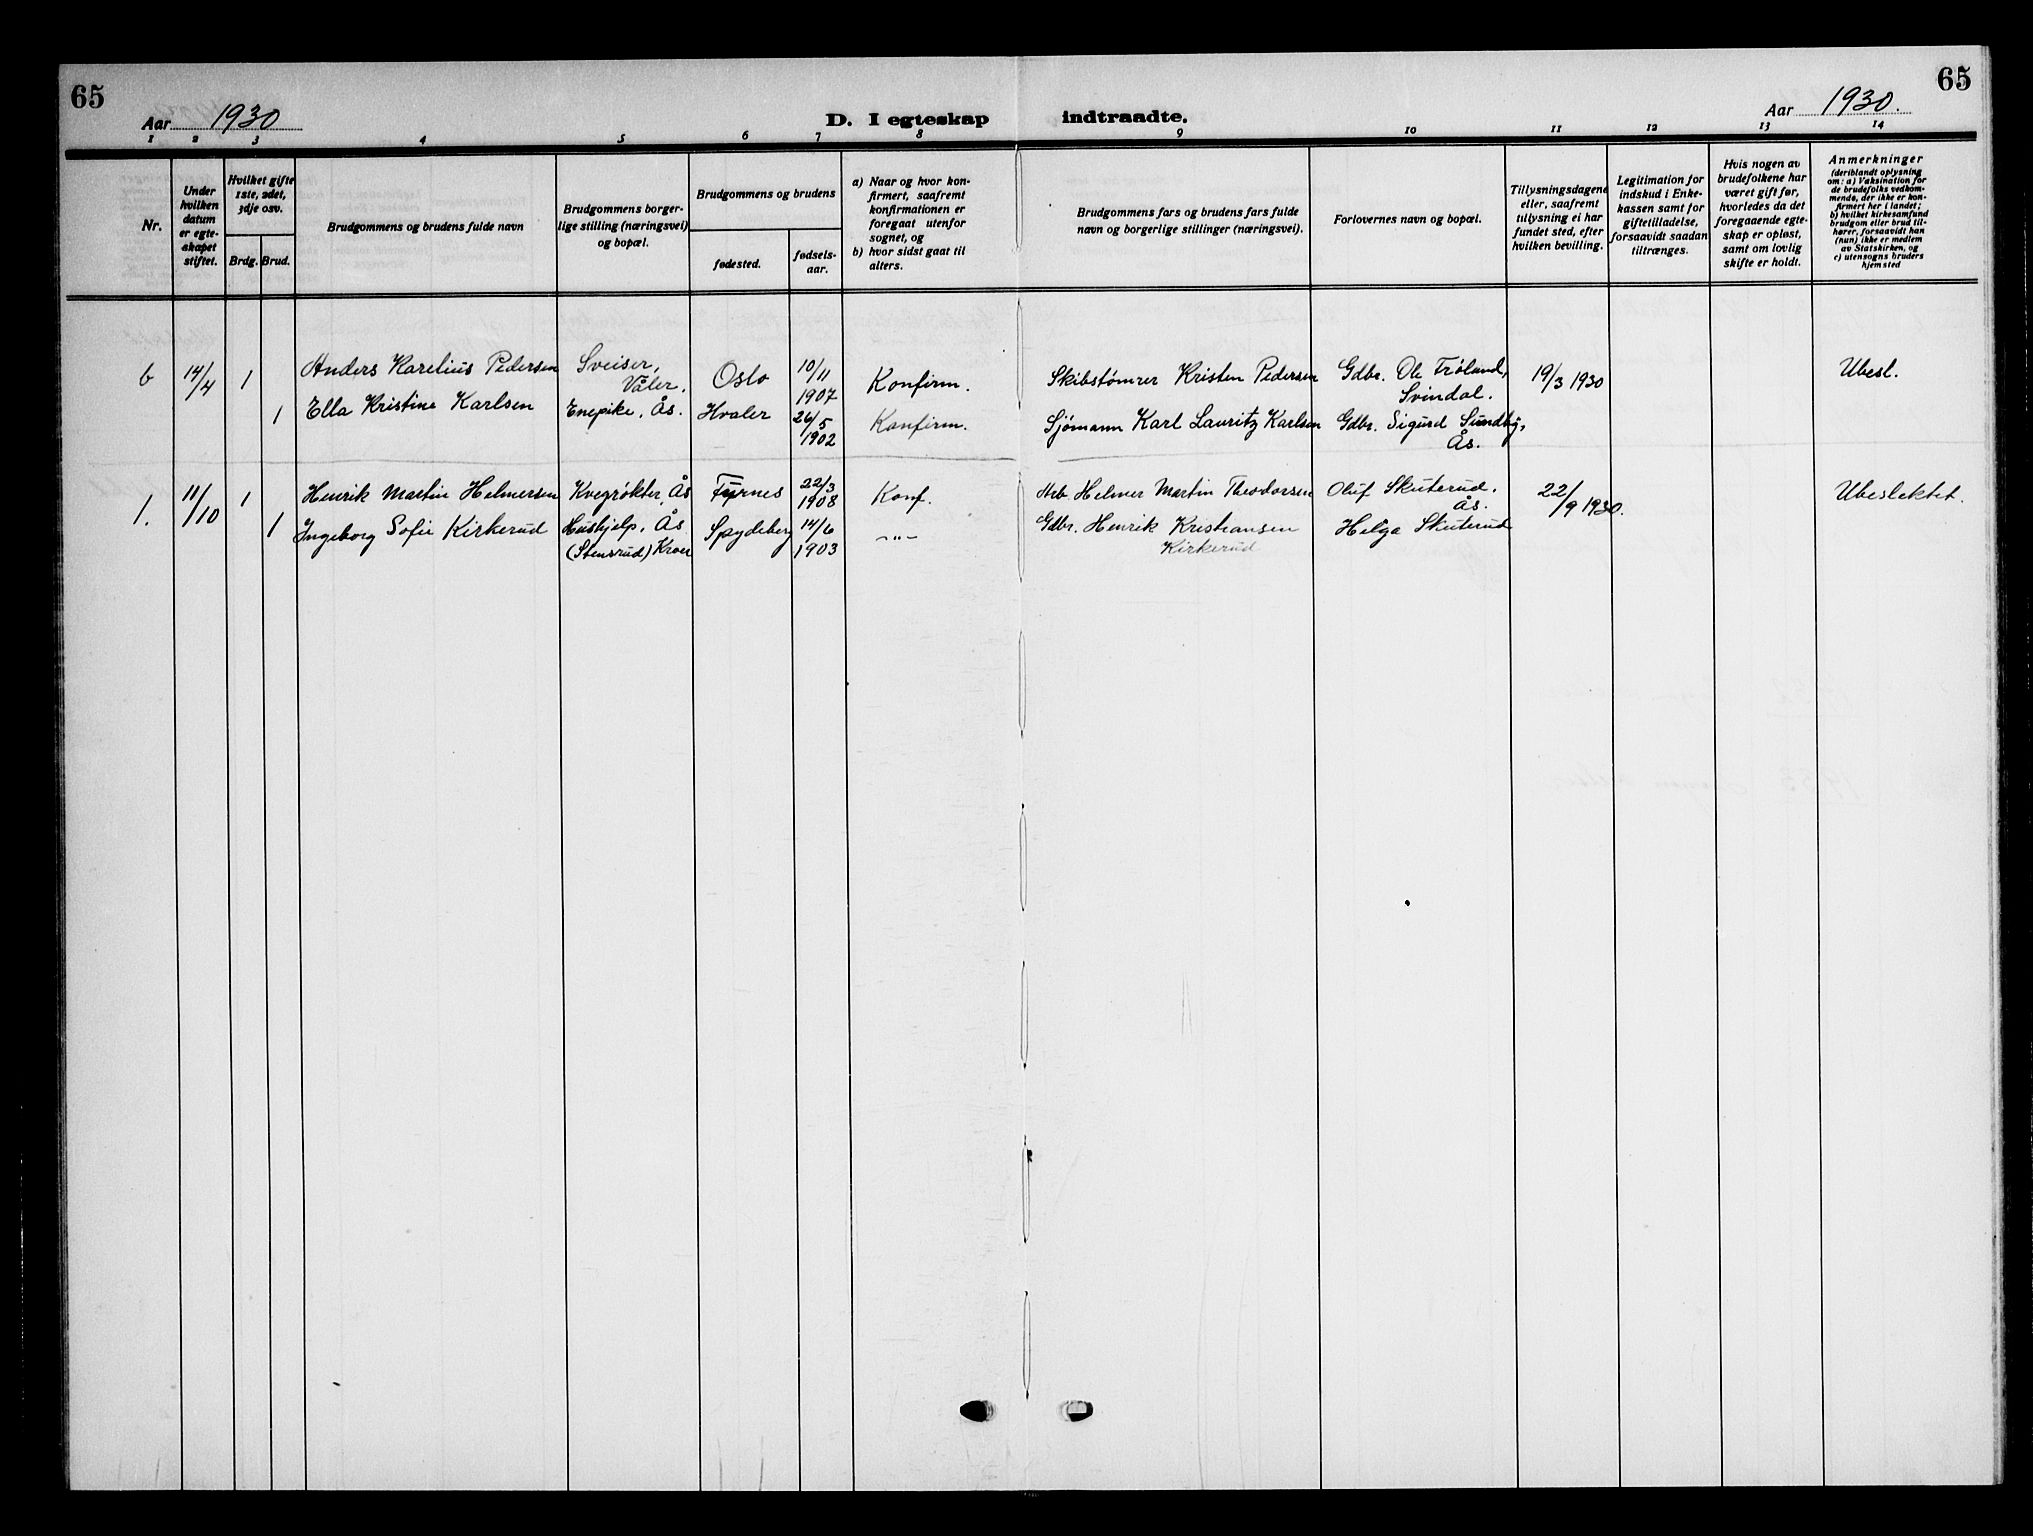 65
Aar 1930
D. I egteskap indtraadte.
Aar 1930.
65
1 2 3 4 5 6 7 8 9 10 11 12 13 14
Nr.
Under hvilken datum er egteskapet stiftet.
Hvilket gifte 1ste, 2det, 3dje osv.
Brdg. Brud.
Brudgommens og brudens fulde navn
Brudgommens borgerlige stilling (næringsvei) og bopæl.
Brudgommens og brudens
fødested.
fødselsaar.
a) Naar og hvor konfirmert, saafremt konfirmationen er foregaat utenfor sognet, og
b) hvor sidst gaat til alters.
Brudgommens fars og brudens fars fulde navn og borgerlige stillinger (næringsvei).
Forlovernes navn og bopæl.
Tillysningsdagene eller, saafremt tillysning ei har fundet sted, efter hvilken bevilling.
Legitimation for indskud i Enkekassen samt for giftetilladelse, forsaavidt saadan tiltrænges.
Hvis nogen av brudefolkene har været gift før, hvorledes da det foregaaende egteskap er opløst, samt om lovlig skifte er holdt.
Anmerkninger
(deriblandt oplysning om: a) Vaksination for de brudefolks vedkommende, der ikke er konfirmert her i landet;
b) hvilket kirkesamfund brudgom eller brud tilhører, forsaavidt han (hun) ikke er medlem av Statskirken, og
c) utensogns bruders hjemsted
6 14/4 1 Anders Karelius Pedersen Sveiser, Våler. Oslo 10/11 1907 Konfirm. Skibstømrer Kristen Pedersen Gdbr. Ole Trøland, Svindal. 19/3 1930 Ubesl.
1 Ella Kristine Karlsen Enepike, Ås. Hvaler 26/5 1902 Konfirm. Sjømann Karl Lauritz Karlsen Gdbr. Sigurd Sundby, Ås.
1. 11/10 1 Henrik Martin Helmersen Kvegrøkter, Ås Furnes 22/3 1908 Konf. Arb Helmer Martin Theodorsen Oluf Skuterud. Ås. 22/9 1930. Ubeslektet.
1 Ingeborg Sofie Kirkerud Hushjelp, Ås (Stensrud) Kroer Spydeberg 14/6 1903 -"- Gdbr. Henrik Kristiansen Kirkerud Helga Skuterud